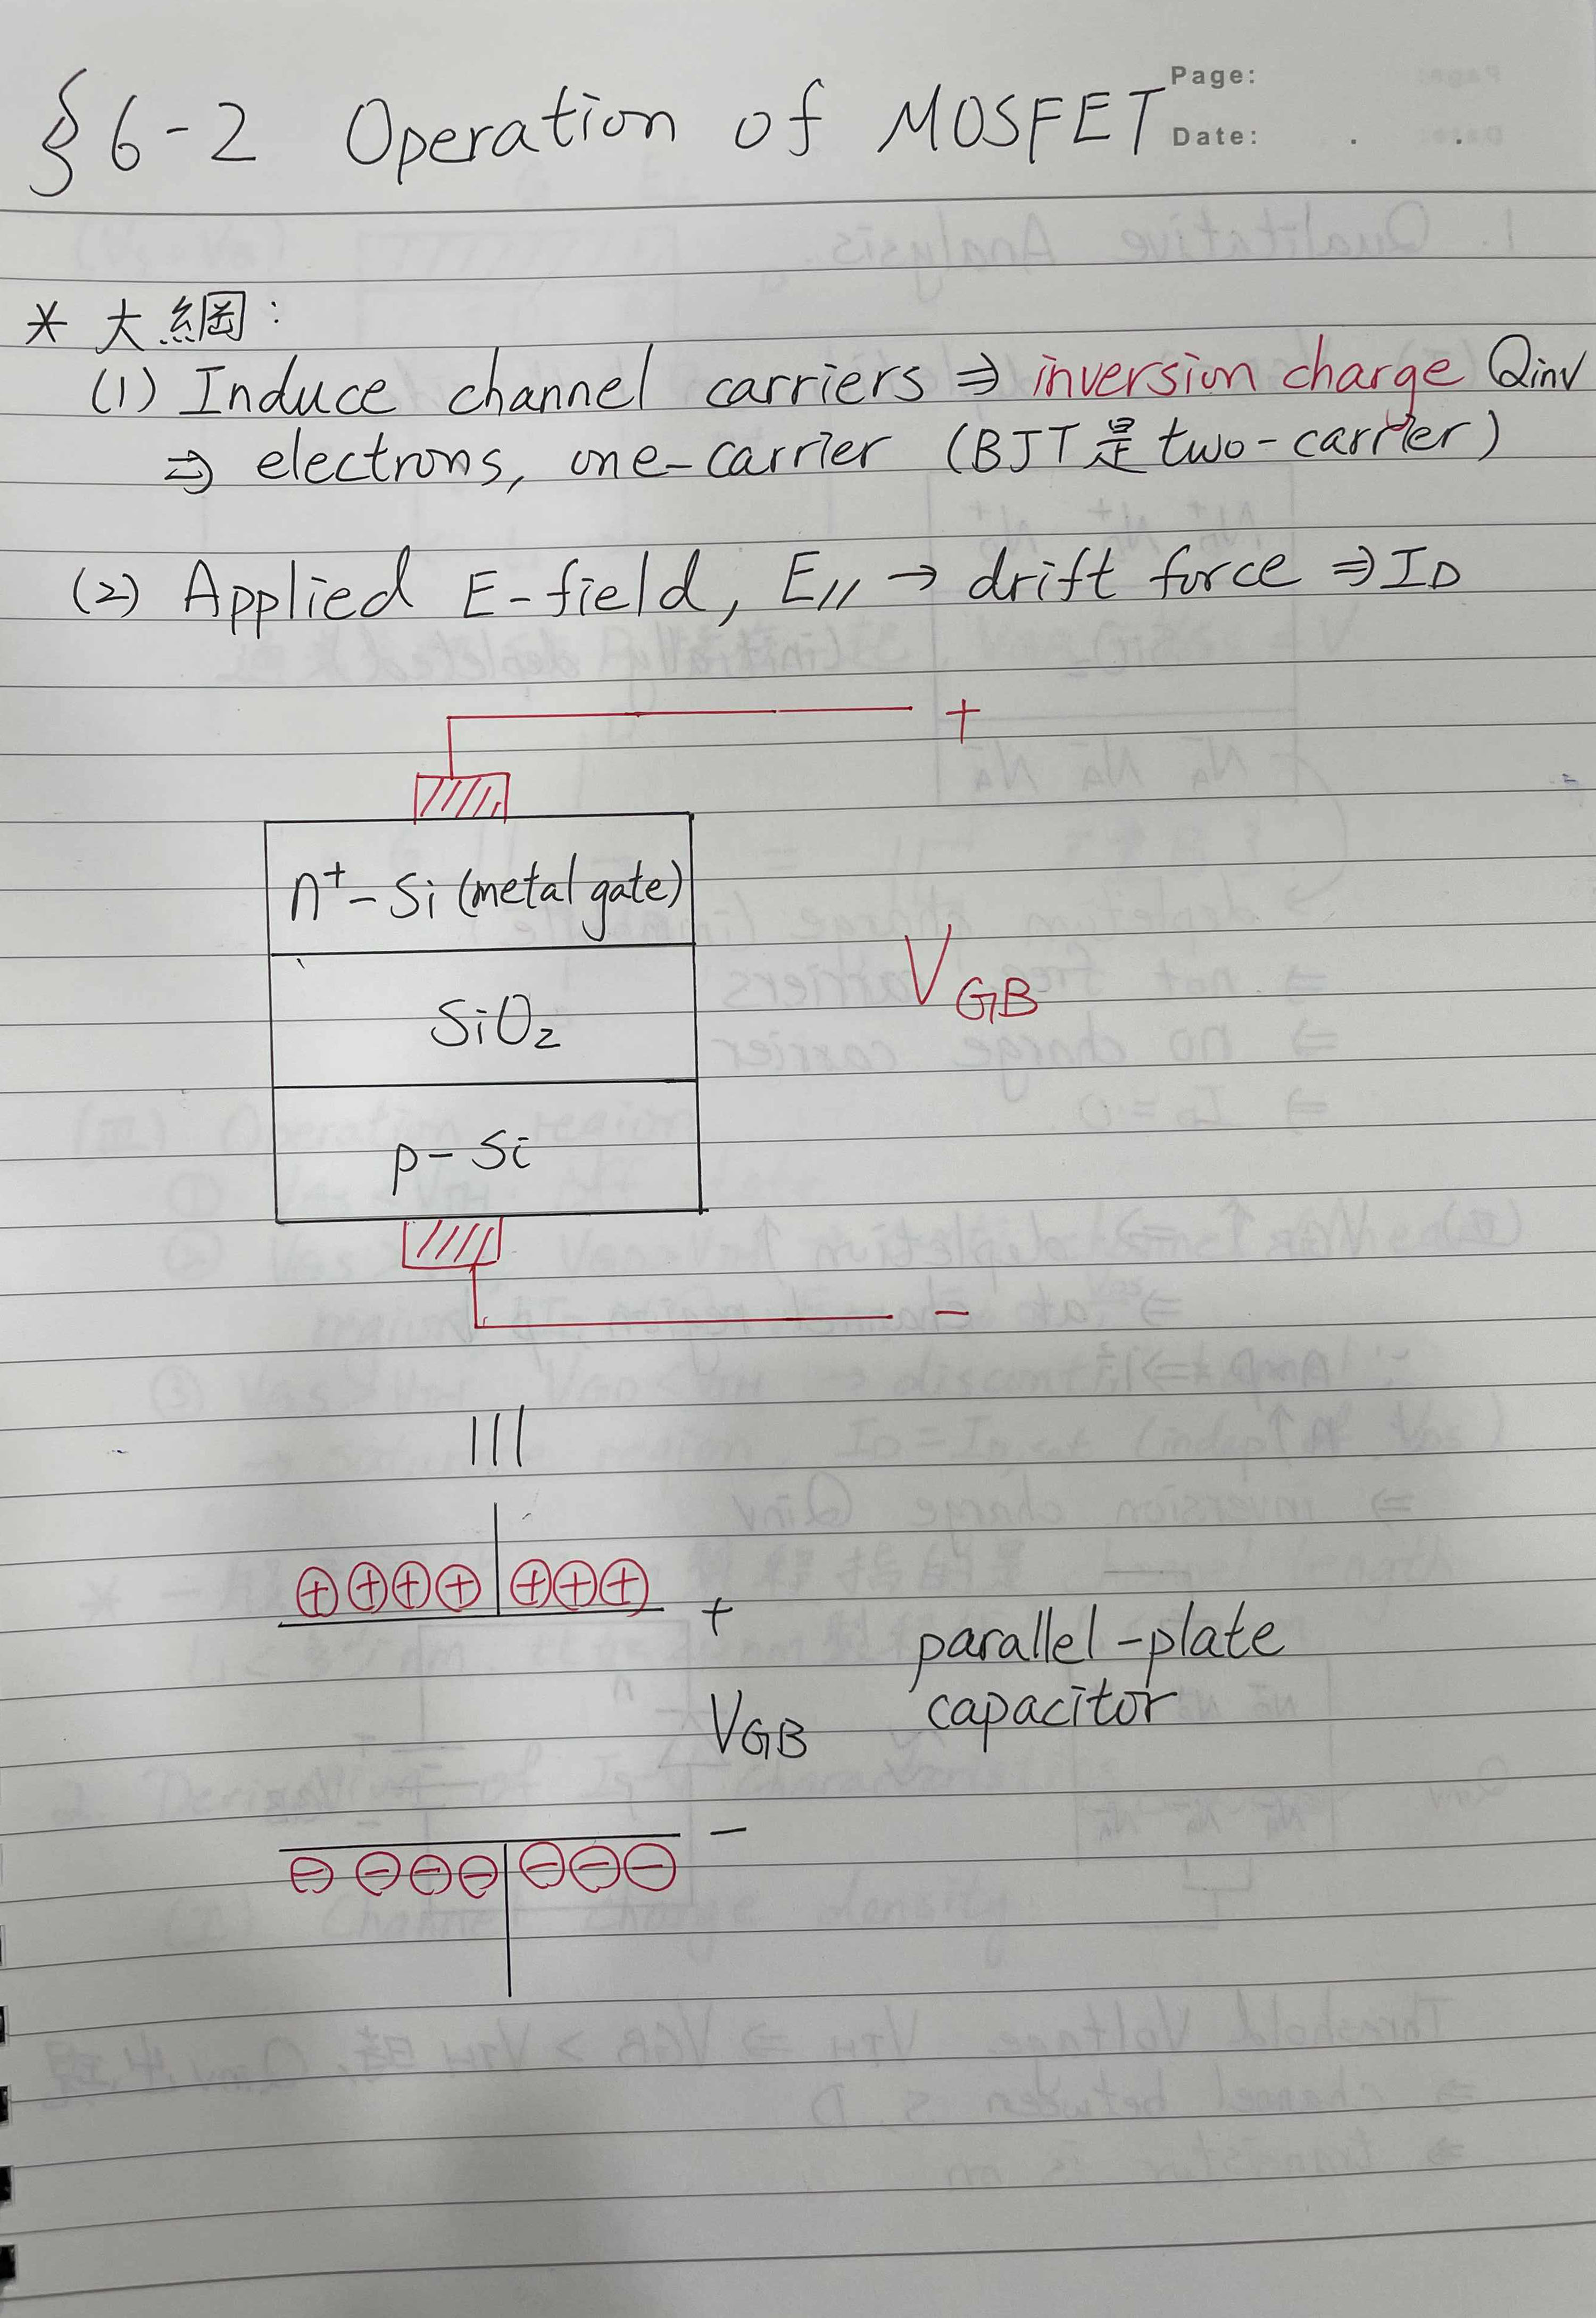 Page:
§6-2 Operation of MOSFET
Date: . .
* 大綱:
(1) Induce channel carriers ⇒ inversion charge Qinv
⇒ electrons, one-carrier (BJT是two-carrier)
(2) Applied E-field, E// → drift force ⇒ ID
+
n⁺-Si (metal gate)
VGB
SiO₂
p-Si
-
|||
⊕⊕⊕⊕ ⊕⊕⊕
+
parallel-plate
VGB capacitor
-
⊖⊖⊖⊖ ⊖⊖⊖